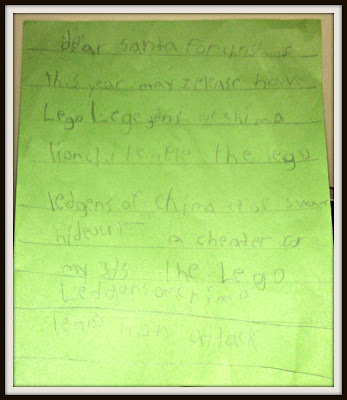 dear santa for chris is
this year may i please have
Lego Legegons of chima
lion chi temple the lego
ledgens of chima
hideout a cheater for
my 3DS the Lego
Ledgons of chima
lion attack